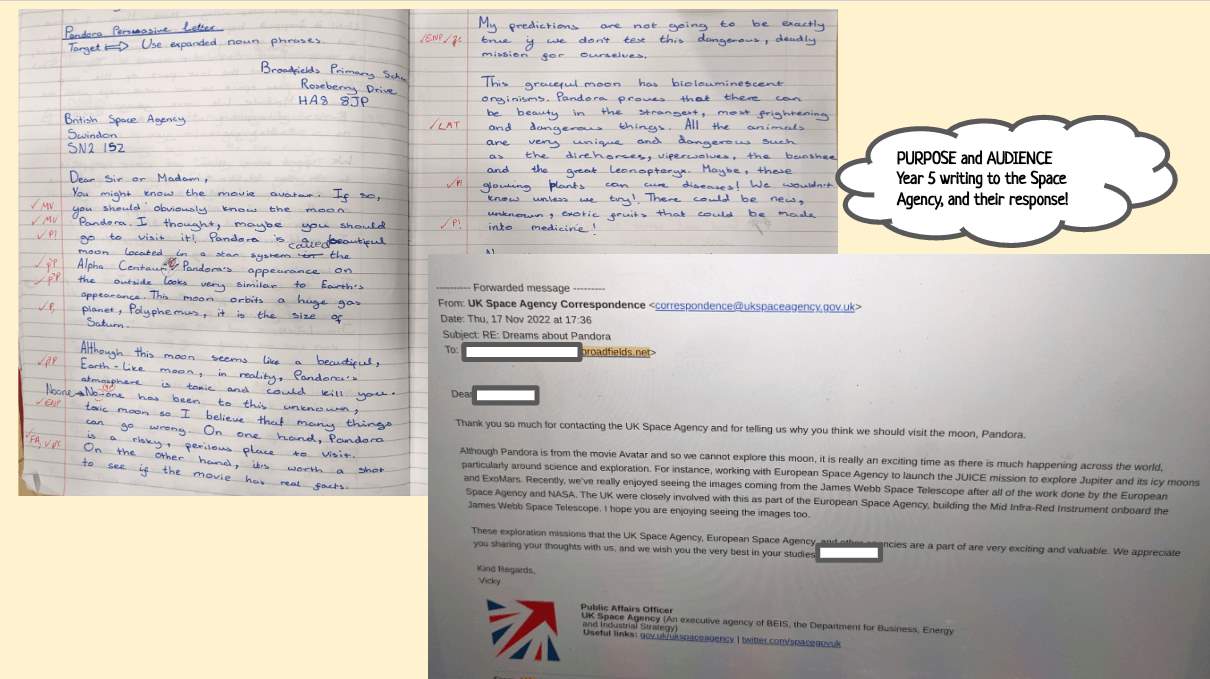 Pandora Persuasive Letter
Target ⟹ Use expanded noun phrases.
Broadfields Primary Sch
Roseberry Drive
HA8 8JP
British Space Agency
Swindon
SN2 1SZ
Dear Sir or Madam,
You might know the movie avatar. If so,
✓ MV you should obviously know the moon
✓ MV Pandora. I thought, maybe you should
✓ P! go to visit it! Pandora is a beautiful
called
moon located in a star system the
Alpha Centauri. Pandora's appearance on
the outside looks very similar to Earth's
appearance. This moon orbits a huge gas
✓ P, planet, Polyphemus, it is the size of
Saturn.
Although this moon seems like a beautiful,
Earth-like moon, in reality, Pandora's
atmosphere is toxic and could kill you.
Noone No-one has been to this unknown,
✓ ENP toxic moon so I believe that many things
can go wrong. On one hand, Pandora
is a risky, perilous place to visit.
On the other hand, it's worth a shot
to see if the movie has real facts.
My predictions are not going to be exactly
true if we don't test this dangerous, deadly
mission for ourselves.
This graceful moon has biolouminescent
orginisms. Pandora proves that there can
be beauty in the strangest, most frightening
✓ LAT and dangerous things. All the animals
are very unique and dangerous such
as the direhorces, viperwolves, the banshee
and the great Leonopteryx. Maybe, these
glowing plants can cure diseases! We wouldn't
know unless we try! There could be new,
unknown, exotic fruits that could be made
✓ P! into medicine!
PURPOSE and AUDIENCE
Year 5 writing to the Space
Agency, and their response!
---------- Forwarded message ---------
From: UK Space Agency Correspondence <correspondence@ukspaceagency.gov.uk>
Date: Thu, 17 Nov 2022 at 17:36
Subject: RE: Dreams about Pandora
To: broadfields.net>
Dear
Thank you so much for contacting the UK Space Agency and for telling us why you think we should visit the moon, Pandora.
Although Pandora is from the movie Avatar and so we cannot explore this moon, it is really an exciting time as there is much happening across the world,
particularly around science and exploration. For instance, working with European Space Agency to launch the JUICE mission to explore Jupiter and its icy moons
and ExoMars. Recently, we've really enjoyed seeing the images coming from the James Webb Space Telescope after all of the work done by the European
Space Agency and NASA. The UK were closely involved with this as part of the European Space Agency, building the Mid Infra-Red Instrument onboard the
James Webb Space Telescope. I hope you are enjoying seeing the images too.
These exploration missions that the UK Space Agency, European Space Agency, and other agencies are a part of are very exciting and valuable. We appreciate
you sharing your thoughts with us, and we wish you the very best in your studies
Kind Regards,
Vicky
Public Affairs Officer
UK Space Agency (An executive agency of BEIS, the Department for Business, Energy
and Industrial Strategy)
Useful links: gov.uk/ukspaceagency | twitter.com/spacegovuk